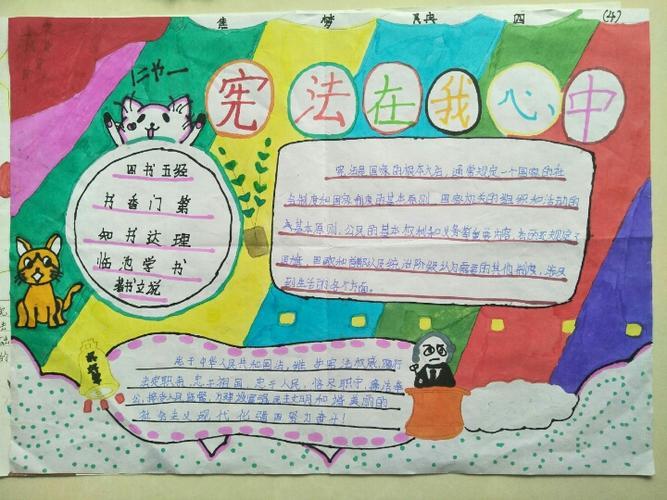 焦 梦 冉 四 (4)
宪法在我心中
四书五经
书香门第
知书达理
临池学书
著书立说
宪法是国家的根本大法,通常规定一个国家的社
会制度和国家制度的基本原则,国家机关的组织和活动的
基本原则,公民的基本权利和义务等重要内容,有的还规定了
国旗、国歌和首都以及统治阶级认为重要的其他制度,涉及
到生活的各个方面。
忠于中华人民共和国宪法,维护宪法权威,履行
法定职责,忠于祖国、忠于人民,恪尽职守、廉洁奉
公,接受人民监督,为建设富强民主文明和谐美丽的
社会主义现代化强国努力奋斗!